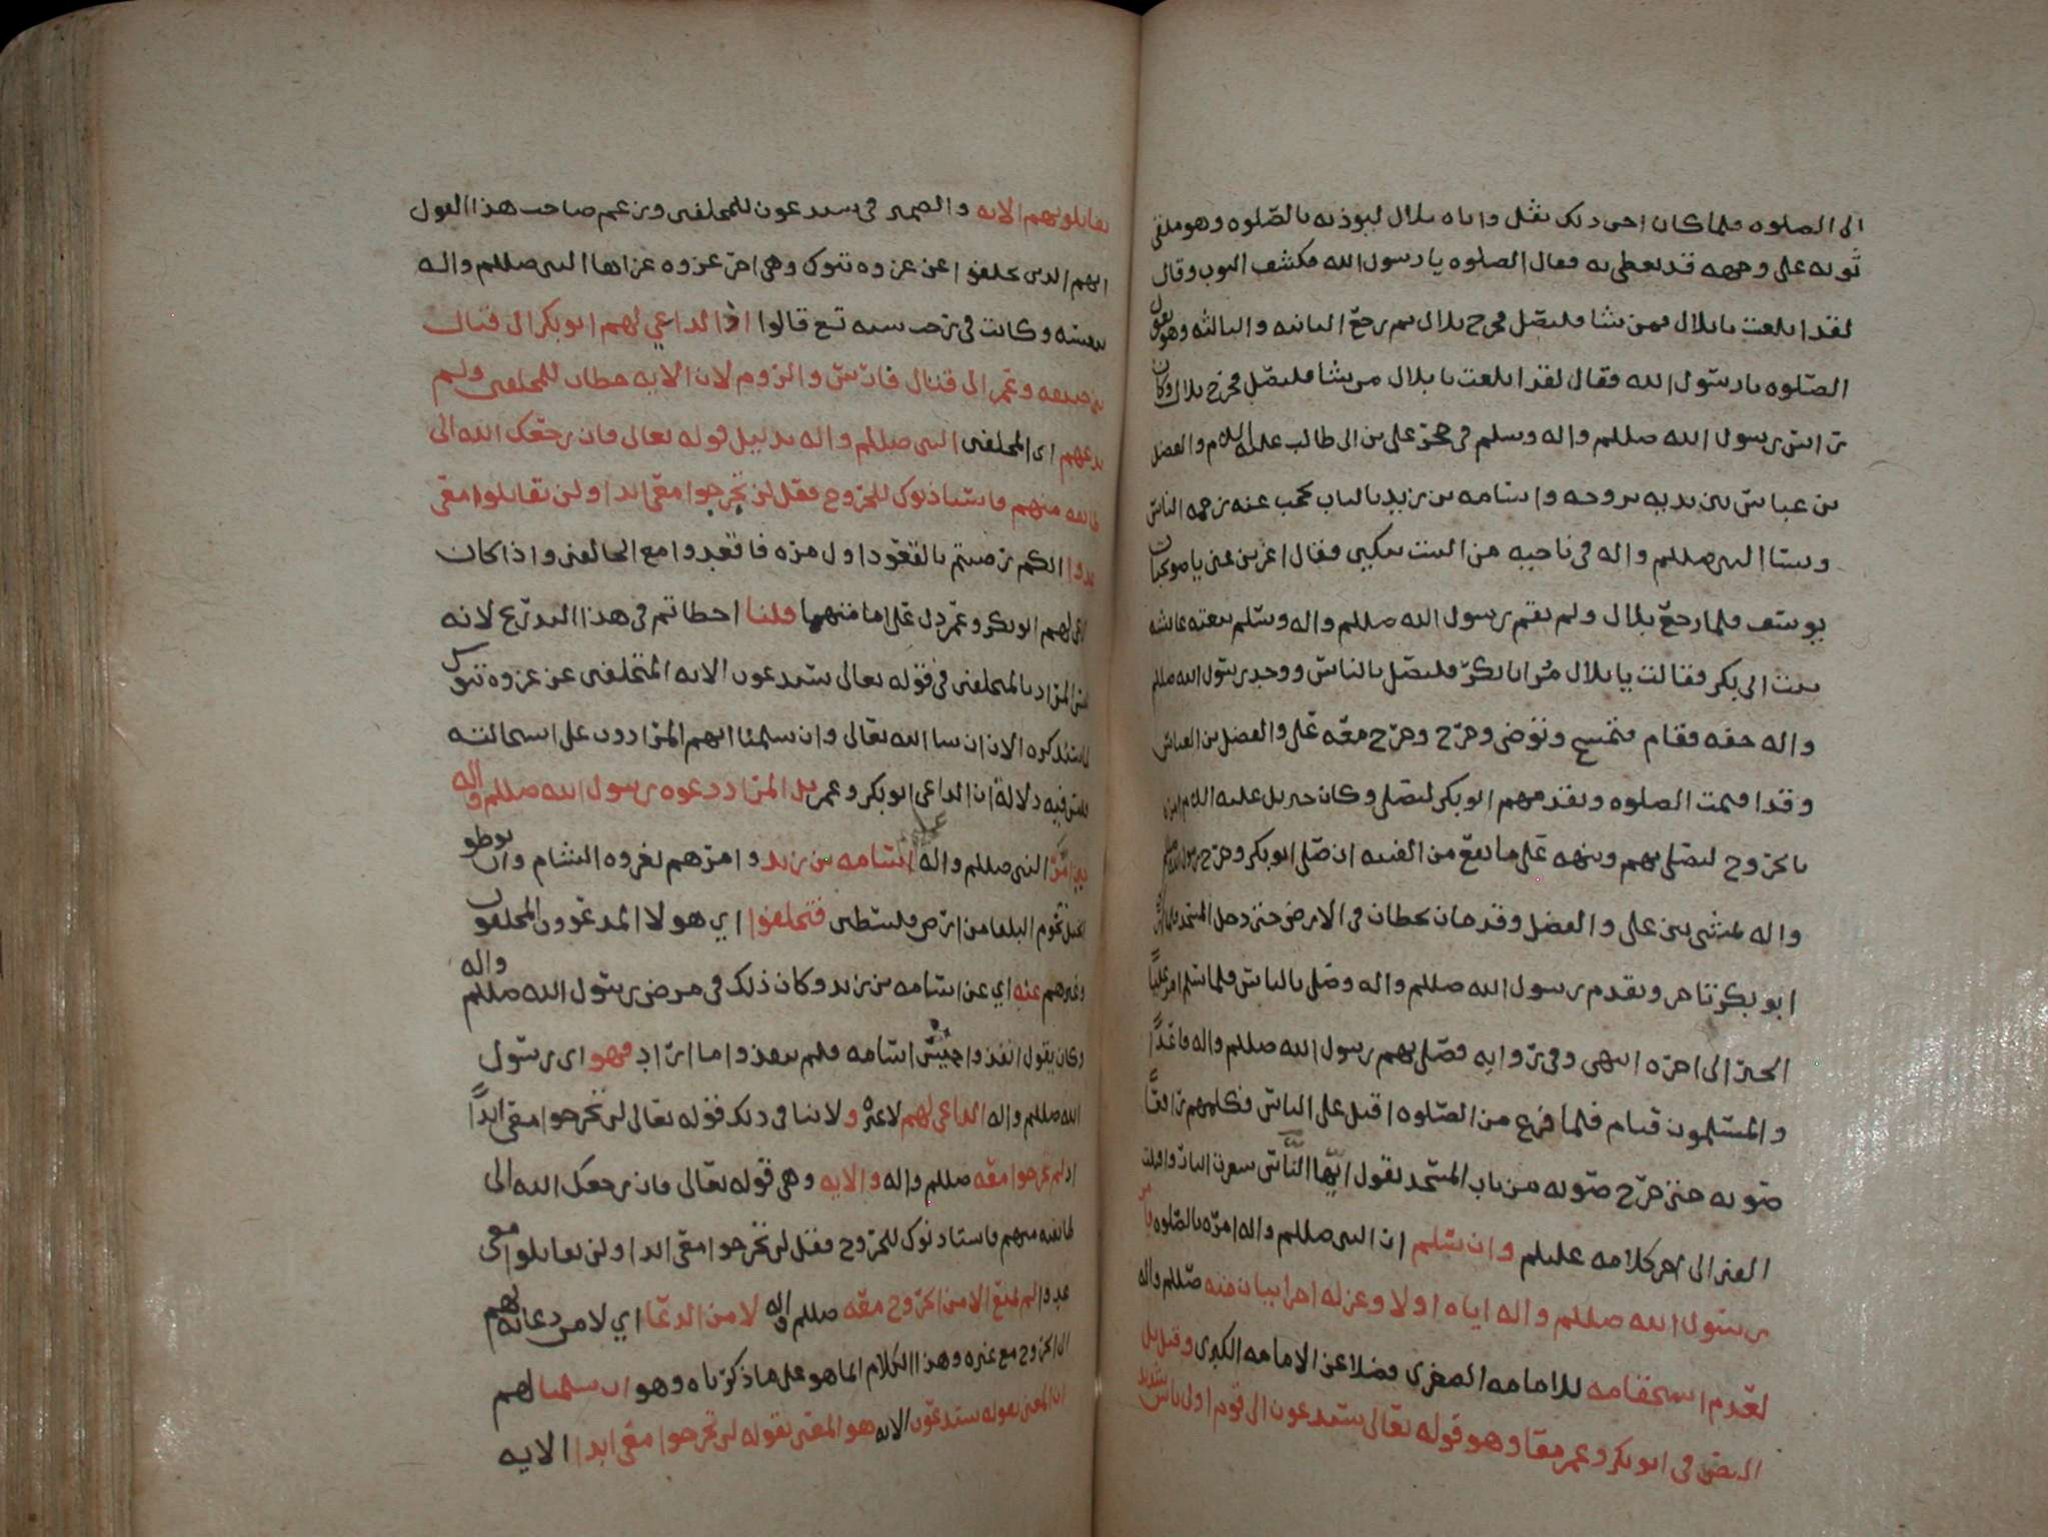 الى الصلوه فلما كان احى ذلك ثقل واتاه بلال ليوذنه بالصلوه وهو ملقى
ثوبه على وجهه قد تغطى به فقال الصلوه يا رسول الله فكشف الثوب وقال
لقد ابلغت يا بلال فمن شا فليصل فخرج بلال ثم رجع الثانيه والثالثه وهو يقول
الصلوه يا رسول الله فقال لقد ابلغت يا بلال من شا فليصل فخرج بلال وكان
راس رسول الله صللم واله وسلم في حجر على بن ابى طالب عليه السلام والفضل
بن عباس بين يديه يروحه واسامه بن زيد بالباب يحجب عنه زحمه الناس
ونسا النبى صللم واله في ناحيه من البيت يبكين فقال اعزبن عنى يا صويحبات
يوسف فلما رجع بلال ولم يقم رسول الله صللم واله وسلم بعثته عائشه
بنت ابى بكر فقالت يا بلال مر ابا بكر فليصل بالناس ووجد رسول الله صللم
واله خفه فقام فتمسح وتوضى وخرج وخرج معه على والفضل بن العباس
وقد اقيمت الصلوه وتقدمهم ابو بكر ليصلى وكان جبريل عليه السلام امره
بالخروج ليصلى بهم وينبهه على ما يقع من الفتنه ان صلى ابو بكر وخرج رسول الله صللم
واله يمشى بين على والفضل وقدماه تخطان في الارض حتى دخل المسجد فلما راه
ابو بكر تاخر وتقدم رسول الله صللم واله وصلى بالناس فلما سلم امر عليا
الخبر الى اخره انتهى وفى روايه فصلى بهم رسول الله صللم واله قاعدا
والمسلمون قيام فلما فرغ من الصلوه اقبل على الناس فكلمهم رافعا
صوته حتى خرج صوته من باب المسجد يقول ايها الناس سعرت النار واقبلت
الفتن الى اخر كلامه عليلم وان سلم ان النبى صللم واله امره بالصلوه يا مر
رسول الله صللم واله اياه اولا وعزله اخرا بيان منه صللم واله
لعدم استحقاقه للامامه الصغرى فضلا عن الامامه الكبرى وقيل بل
النص في ابو بكر وعمر معا وهو قوله تعالى ستدعون الى قوم اولى باس شديد
تقاتلونهم الايه والضمير في ستدعون للمخلفين وزعم صاحب هذا القول
انهم الذين تخلفوا عن غزوه تبوك وهى اخر غزوه غزاها النبى صللم واله
بنفسه وكانت في رجب سنه تسع قالوا اذ الداعي لهم ابو بكر الى قتال
بنى حنيفه وعمر الى قتال فارس والروم لان الايه خطاب للمخلفين ولم
يدعهم اى المخلفين النبى صللم واله بدليل قوله تعالى فان رجعك الله الى
طائفه منهم فاستاذنوك للخروج فقل لن تخرجوا معى ابدا ولن تقاتلوا معى
عدوا انكم رضيتم بالقعود اول مره فاقعدوا مع الخالفين واذا كان
الداعى لهم ابو بكر وعمر دل على امامتهما قلنا اخطاتم في هذا التدريج لانه
ليس المراد بالمخلفين في قوله تعالى ستدعون الايه المتخلفين عن غزوه تبوك
لما سنذكره الان ان شا الله تعالى وان سلمنا انهم المرادون على استحالته
فليس فيه دلاله ان الداعى ابو بكر وعمر بل المراد دعوه رسول الله صللم واله
النبى صللم واله اسامه بن زيد وامرهم بغزوه الشام وان يوطو
الخيل تخوم البلقا من ارض فلسطين فتخلفوا اي هولا المدعوون المخلفون
وغيرهم عنه اي عن اسامه بن زيد وكان ذلك في مرض رسول الله صللم واله
وكان يقول انفذوا جيش اسامه فلم ينفذوا ما اراد فهو اى رسول
الله صللم واله الداعى لهم لا غيره ولا ينافى ذلك قوله تعالى لن تخرجوا معى ابدا
اذ لم يخرجوا معه صللم واله والايه وهى قوله تعالى فان رجعك الله الى
طائفه منهم فاستاذنوك للخروج فقل لن تخرجوا معى ابدا ولن تقاتلوا معى
عدوا لم تمنع الا من الخروج معه صللم واله لا من الدعا اي لا من دعائه لهم
الى الخروج مع غيره وهذا الكلام انما هو على ما ذكرناه وهو ان سلمنا لهم
ان المعنى بقوله ستدعون الايه هو المعنى بقوله لن تخرجوا معى ابدا الايه